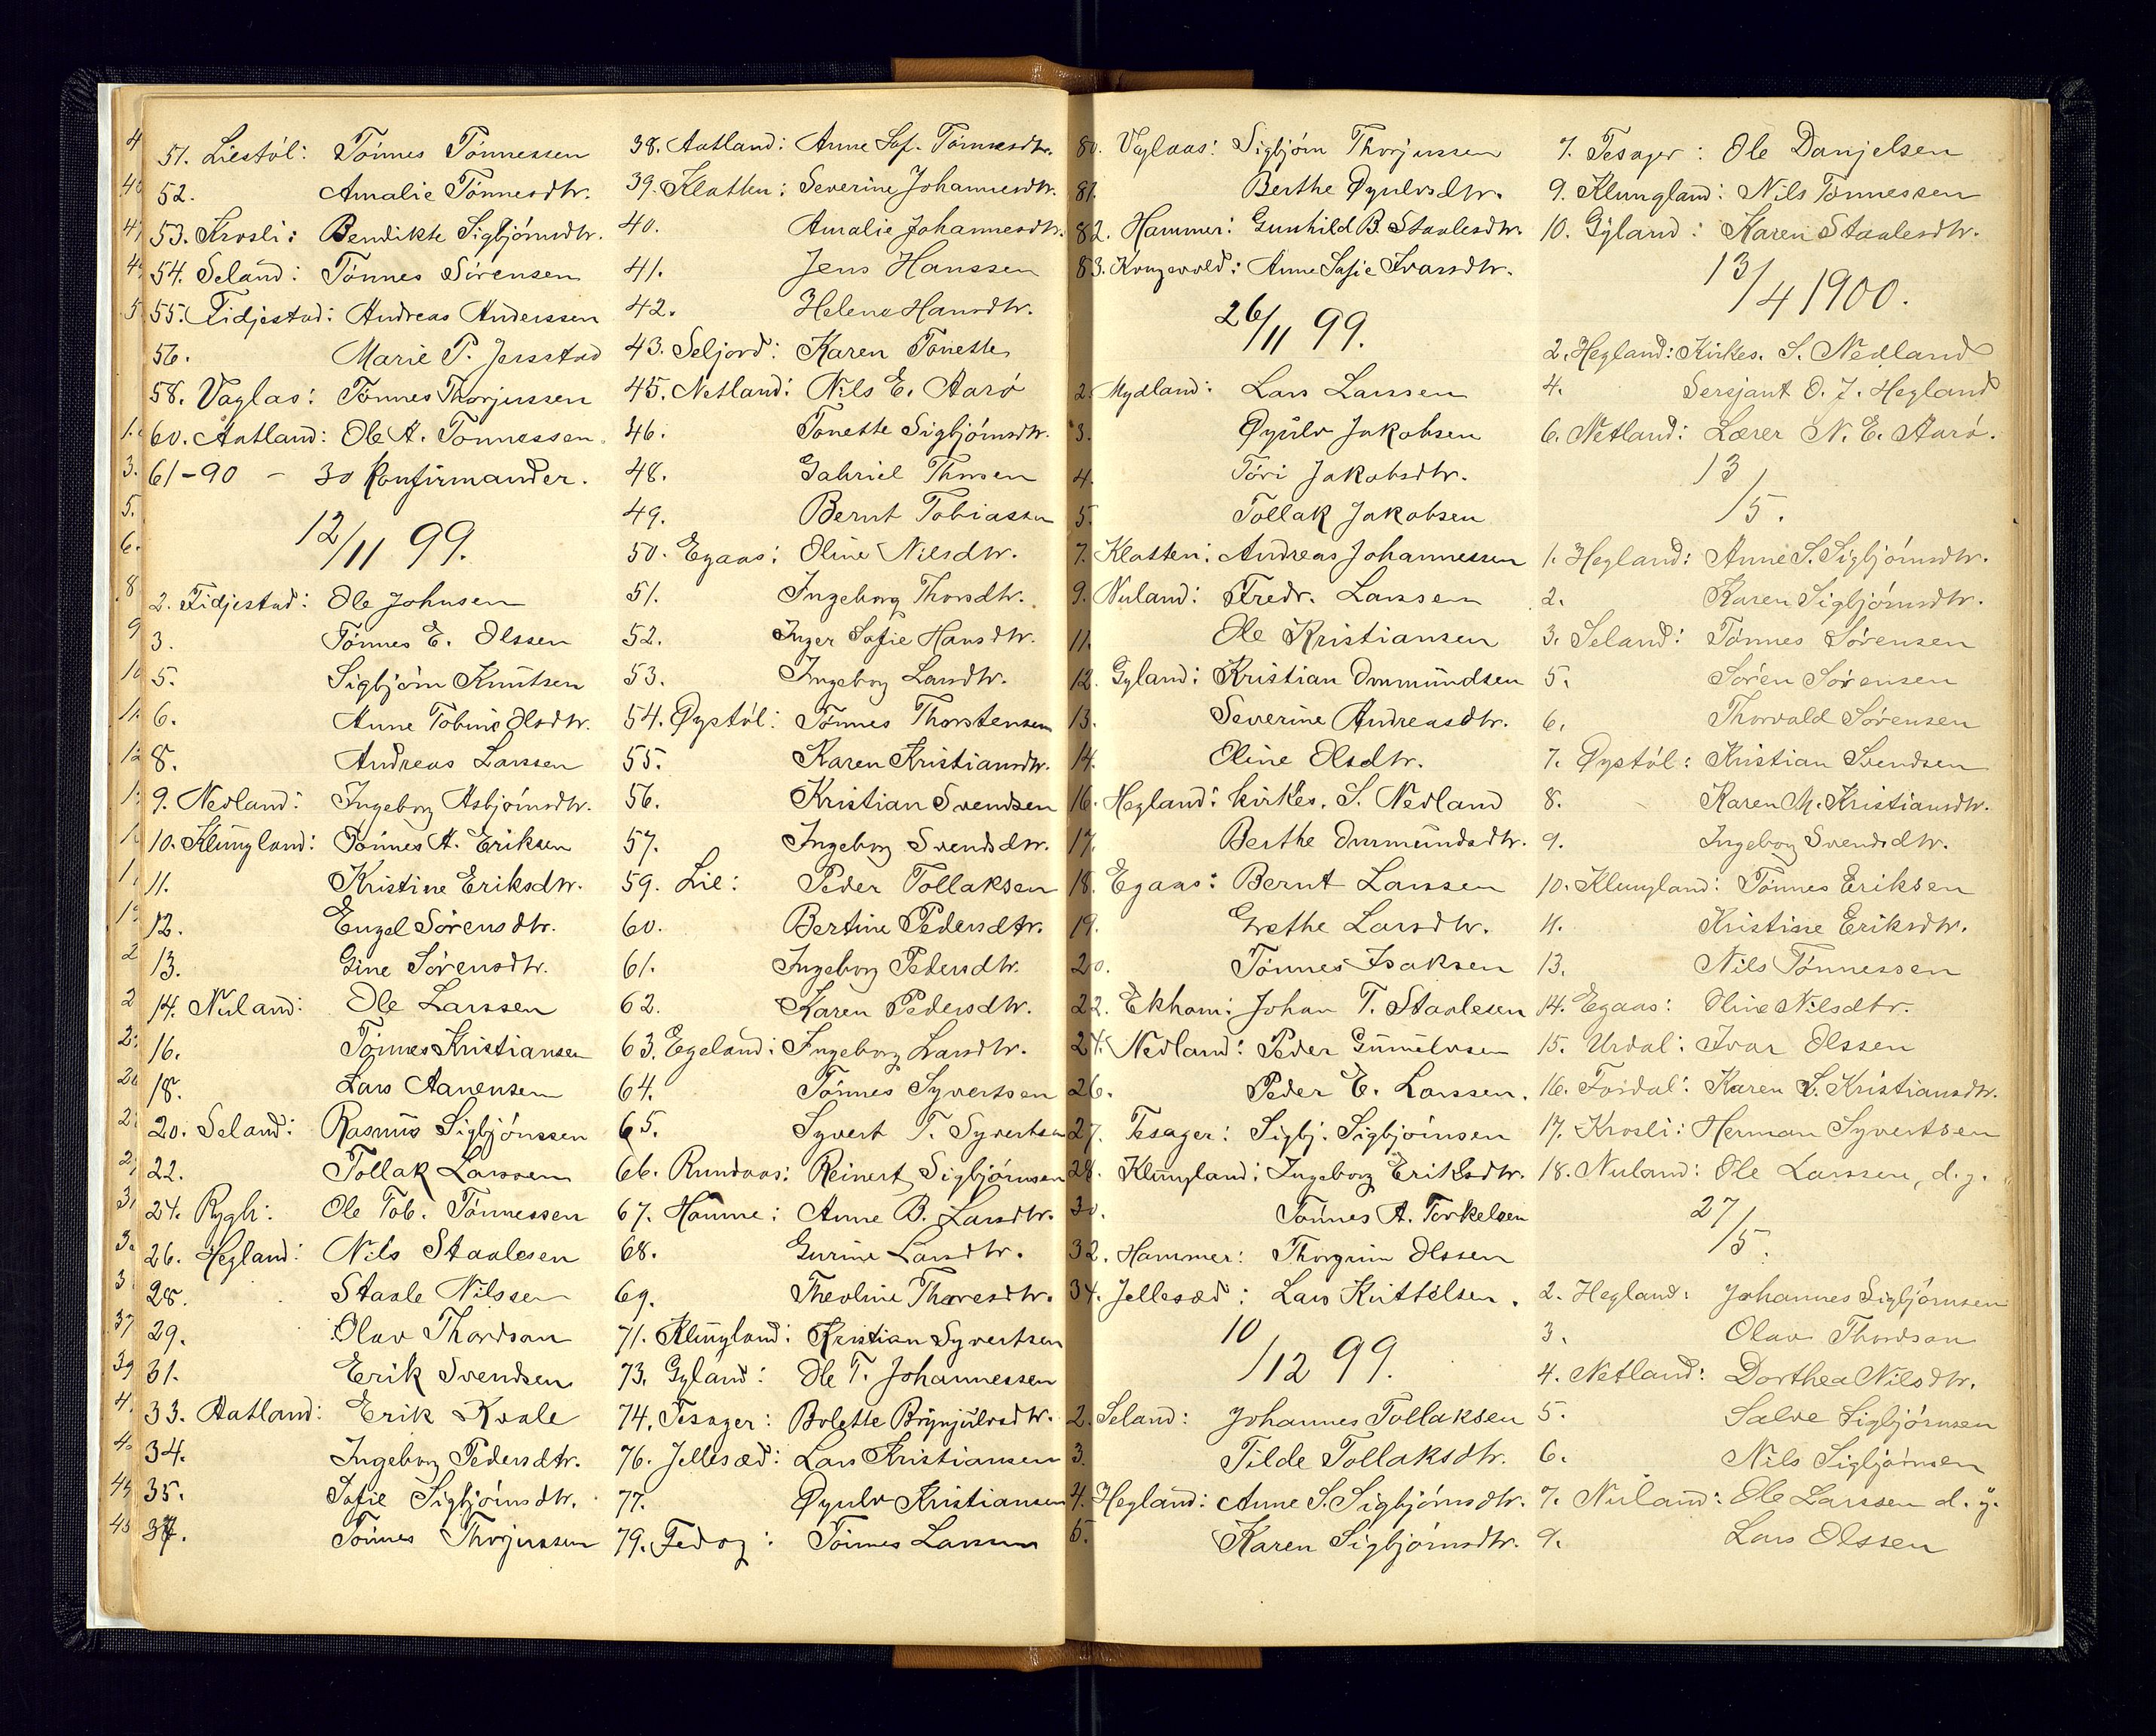 51. Liestöl: Tönnes Tönnessen
52. Amalie Tönnesdtr.
53. Krosli: Bendikte Sigbjörnsdtr.
54. Seland: Tönnes Sörensen
55. Fidjestad: Andreas Anderssen
56. Marie P. Jersstad
58. Vaglas: Tönnes Thorjussen
60. Aatland: Ole A. Tönnessen.
61-90 - 30 konfirmander.
12/11 99.
2. Fidjestad: Ole Johnsen
3. Tönnes E. Olssen
5. Sigbjörn Knutsen
6. Anne Tobine Olsdtr.
8. Andreas Larssen
9. Nedland: Ingeborg Asbjörnsdtr.
10. Klungland: Tönnes A. Eriksen
11. Kristine Eriksdtr.
12. Engel Sörensdtr.
13. Gine Sörensdtr.
14. Nuland: Ole Larssen
16. Tönnes Kristiansen
18. Lars Aanensen
20. Seland: Rasmus Sigbjörnssen
22. Tollak Larssen
24. Rygh: Ole Tob. Tönnessen
26. Hegland: Nils Staalesen
28. Staale Nilssen
29. Olav Thordson
31. Erik Svendsen
33. Aatland: Erik Kvale
34. Ingeborg Pedersdtr.
35. Sofie Sigbjörnsdtr.
37. Tönnes Thorjussen
38. Aatland: Anne Sof. Tönnesdtr.
39. Klatten: Severine Johannesdtr.
40. Amalie Johannesdtr.
41. Jens Hanssen
42. Helene Hansdtr.
43. Seljord: Karen Tonette
45. Netland: Nils E. Aarö
46. Tonette Sigbjörnsdtr.
48. Gabriel Thorsen
49. Bernt Tobiassen
50. Egaas: Oline Nilsdtr.
51. Ingeborg Thorsdtr.
52. Inger Sofie Hansdtr.
53. Ingeborg Larsdtr.
54. Øystöl: Tönnes Thorstensen
55. Karen Kristiansdtr.
56. Kristian Svendsen
57. Ingeborg Svendsdtr.
59. Lie: Peder Tollaksen
60. Bertine Pedersdtr.
61. Ingeborg Pedersdtr.
62. Karen Pedersdtr.
63. Egeland: Ingeborg Larsdtr.
64. Tönnes Syvertsen
65. Syvert T. Syvertsen
66. Rundaas: Reinert Sigbjörnsen
67. Hamne: Anne B. Larsdtr.
68. Gurine Larsdtr.
69. Theoline Thoresdtr.
71. Klungland: Kristian Syvertsen
73. Gyland: Ole T. Johannessen
74. Tesager: Bolette Brynjulvsdtr.
76. Jellesæd: Lars Kristiansen
77. Øyulv Kristiansen
79. Fedog: Tönnes Larssen
80. Vaglaas: Sigbjörn Thorjussen
81. Berthe Øyulvsdtr.
82. Hammer: Gunhild B. Staalesdtr.
83. Kongevold: Anne Sofie Ivarsdtr.
26/11 99.
2. Mydland: Lars Larssen
3. Øyulv Jakobsen
4. Töri Jakobsdtr.
5. Tollak Jakobsen
7. Klatten: Andreas Johannessen
9. Nuland: Fredr. Larssen
11. Ole Kristiansen
12. Gyland: Kristian Ommundsen
13. Severine Andreasdtr.
14. Oline Olsdtr.
16. Hegland: kirkes. S. Nedland
17. Berthe Ommundsdtr.
18. Egaas: Bernt Larssen
19. Grethe Larsdtr.
20. Tönnes Isaksen
22. Ekhom: Johan T. Staalesen
24. Nedland: Peder Gunnulvsen
26. Peder E. Larssen.
27. Tesager: Sigbj. Sigbjörnsen
28. Klungland: Ingeborg Eriksdtr.
30. Tönnes A. Torkelsen
32. Hammer: Thorgrim Olssen
34. Jellesæd: Lars Kittelsen.
10/12 99.
2. Seland: Johannes Tollaksen
3. Tilde Tollaksdtr.
4. Hegland: Anne S. Sigbjörnsdtr.
5. Karen Sigbjörnsdtr.
7. Tesager: Ole Danjelsen
9. Klungland: Nils Tönnessen
10. Gyland: Karen Staalesdtr.
13/4 1900.
2. Hegland: Kirkes. S. Nedland
4. Sersjant O. J. Hegland
6. Netland: Lærer N. E. Aarö.
13/5.
1. Hegland: Anne S. Sigbjörnsdtr.
2. Karen Sigbjörnsdtr.
3. Seland: Tönnes Sörensen
5. Sören Sörensen
6. Thorvald Sörensen
7. Øystöl: Kristian Svendsen
8. Karen M. Kristiansdtr.
9. Ingeborg Svendsdtr.
10. Klungland: Tönnes Eriksen
11. Kristine Eriksdtr.
13. Nils Tönnessen
14. Egaas: Oline Nilsdtr.
15. Urdal: Ivar Olssen
16. Foidal: Karen S. Kristiansdtr.
17. Krosli: Herman Syvertsen
18. Nuland: Ole Larssen, d.y.
27/5.
2. Hegland: Johannes Sigbjörnsen
3. Olav Thordson
4. Netland: Dorthea Nilsdtr.
5. Salve Sigbjörnsen
6. Nils Sigbjörnsen
7. Nuland: Ole Larssen d.y.
9. Lars Olssen